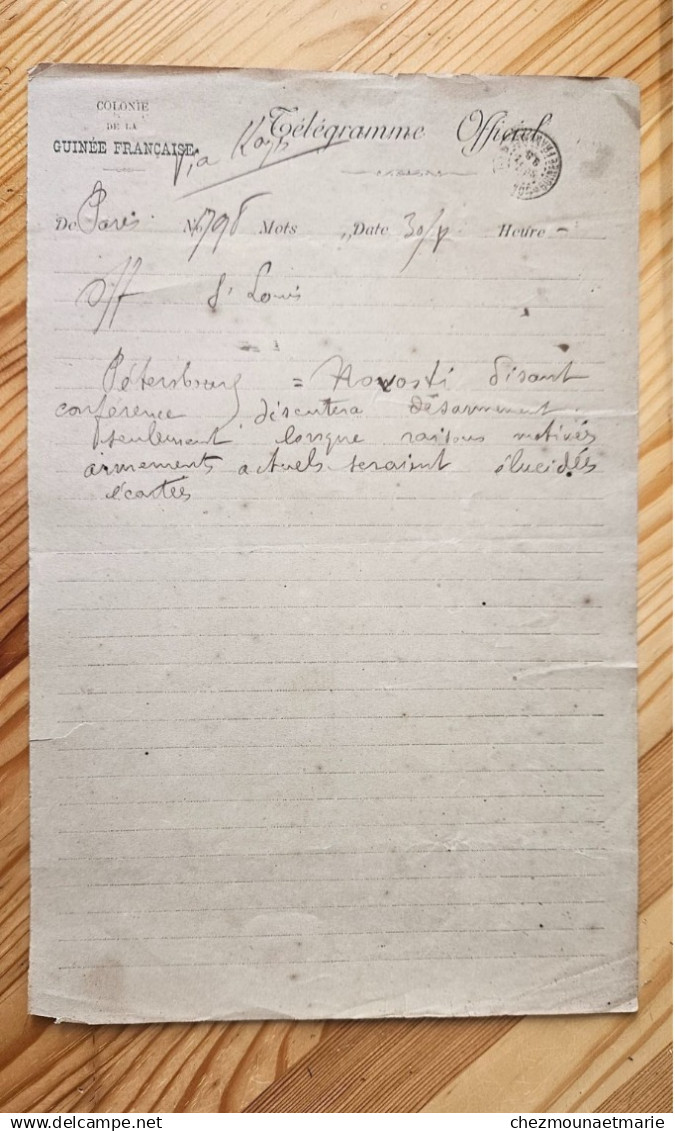 COLONIE
DE LA
GUINÉE FRANÇAISE
Télégramme Officiel
Via Kayes
De Paris. N° 798 Mots „ Date 30/ Heure -
Off St Louis
Pétersbourg = Novosti disant
conférence discutera désarmement
seulement lorsque raisons motivés
armements actuels seraient élucidées
écartées
chezmounaetmarie.com